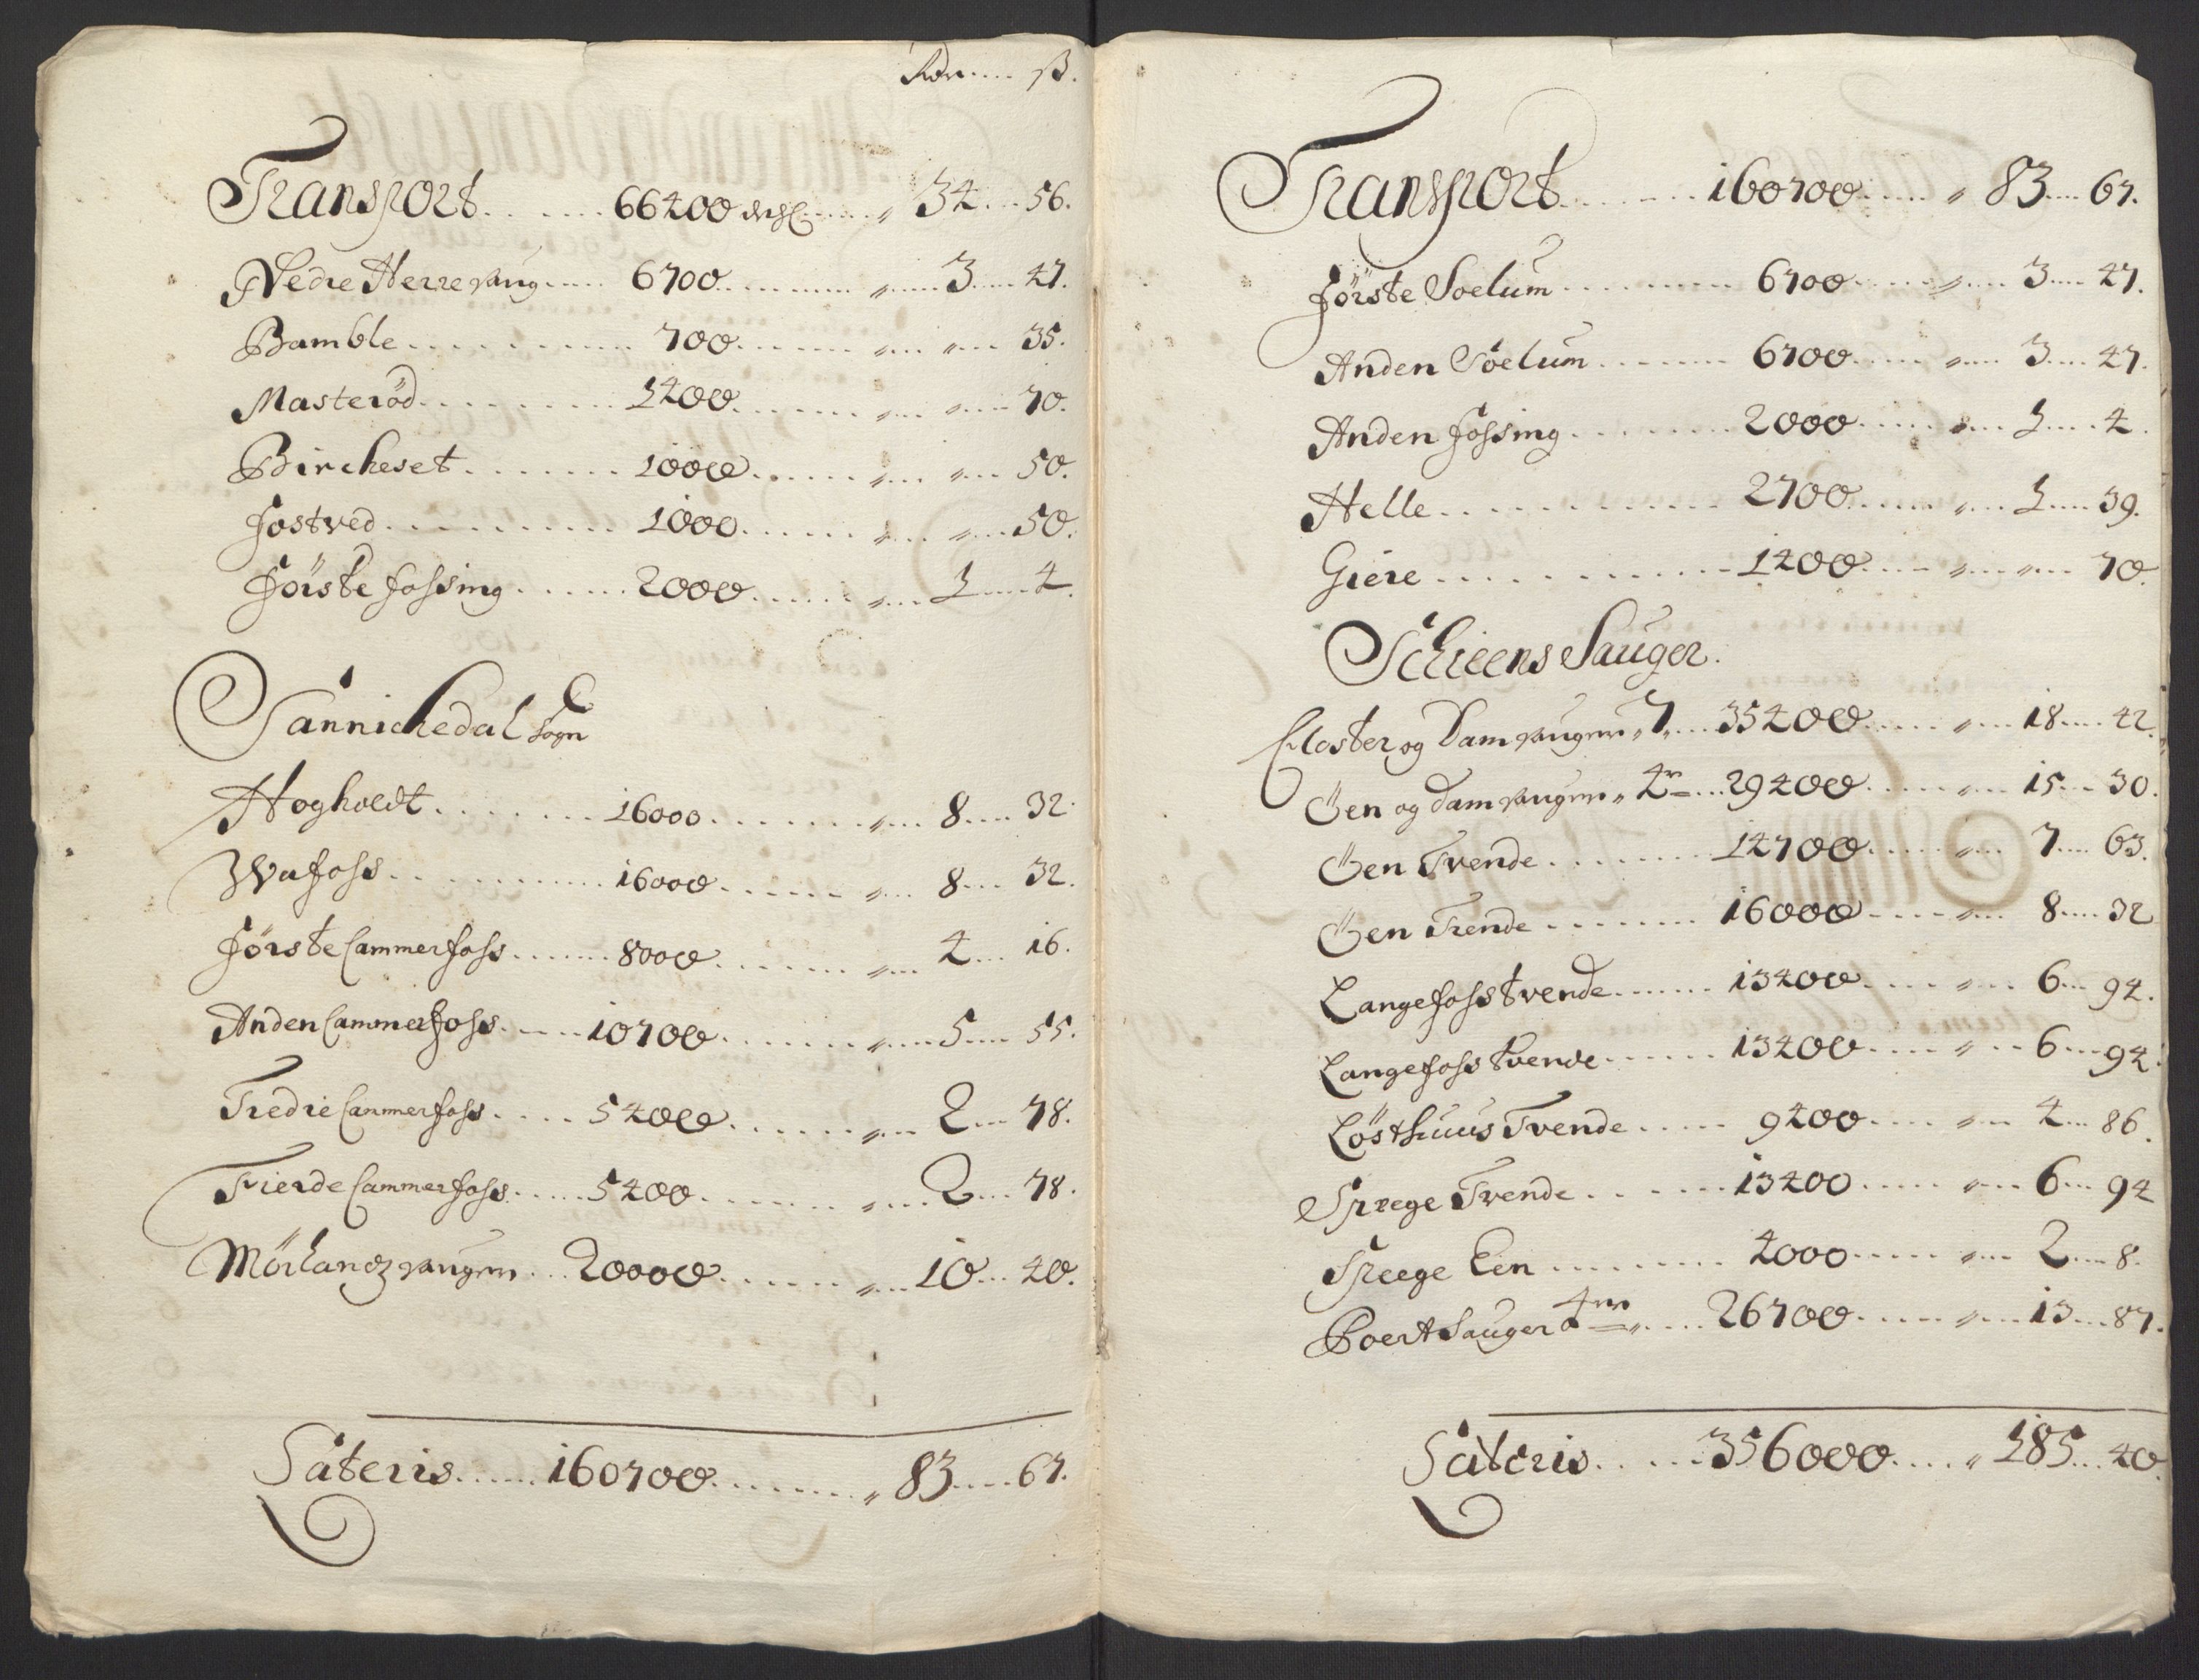 Rdr ..... ß.
Transport ....... 66400 ...... " 34 ... 56.
Nedre Herresaug ..... 6700 ......... " ..... 3 ..... 47.
Bamble .......... 700 ....... " ... " ... 35.
Masteröd .......... 1400 ........ " ... " .... 70.
Bircheset ........ 1000 ....... " ... " ... 50.
Fostved .......... 1000 ....... " ... " .... 50.
Förste Fossing ...... 2000 ...... " ... 1 ..... 4.
Sannickedal Sogn
Hogholdt ........ 16000 ........ " ... 8 .... 32.
Wafoss .......... 16000 ...... " ... 8 ... 32.
Förste Cammerfoss ...... 8000 ....... " ... 4 ... 16.
Anden Cammerfoss ..... 10700 ....... " .... 5 .... 55.
Tredie Cammerfoss .... 5400 ....... " ... 2 ... 78.
Fierde Cammerfoss ..... 5400 ....... " .... 2 ... 78.
Mörlandz saugen ... 20000 ....... " ... 10 ... 40.
Lateris ...... 160700 ......... " 83 .... 67.
Transport ........ 160700 ..... " 83 .... 67.
Förste Soelum ......... 6700 ..... " .... 3 .... 47.
Anden Soelum ....... 6700 ..... " .... 3 .... 47.
Anden Fossing ........ 2000 ..... " ... 1 .... 4.
Helle ............. 2700 ..... " ... 1 .... 39.
Giere ............ 1400 .... " ... " ... 70.
Schieens Sauger.
Closter og Damsaugen " 7 .... 35400 ..... " ... 18 .... 42.
Öen og damsaugen " 4re ... 29400 ..... " ... 15 ... 30.
Öen Tvende ........ 14700 ..... " ... 7 .... 63.
Öen Trende ....... 16000 ..... " ... 8 .... 32
Langefoss tvende ...... 13400 ..... " ... 6 ... 94.
Langefoss tvende ...... 13400 ..... " ... 6 ... 94.
Lösthuus Tvende ..... 9400 .... " ... 4 ... 86.
Sprege Tvende ...... 13400 ..... " ... 6 ... 94
Spreege Een ........ 4000 ..... " ... 2 ... 8.
Poertsauger 4re " .... 26700 ..... " ... 13 ... 87.
Lateris ..... 356000 .... " 185 ... 40.